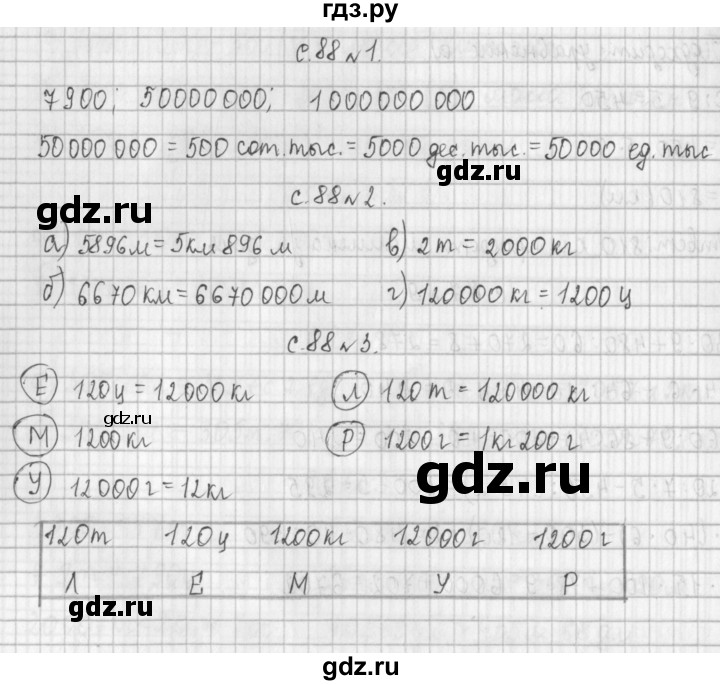 гдз.ру
с.88 №1.
7900; 50000000; 1000000000
50000000 = 500 сот.тыс. = 5000 дес.тыс. = 50000 ед.тыс
gdz.ru
gdz.ru
с.88 №2.
а) 5896м = 5км 896 м
в) 2т = 2000кг
б) 6670 км = 6670 000м
г) 120000 кг = 1200 ц
с.88 №3.
Е 120ц = 12000кг
Л 120т = 120000 кг
gdz.ru
М 1200кг
Р 1200г = 1кг 200 г
gdz.ru
У 12000г = 12кг
120т 120ц 1200кг 12000г 1200г
Л Е М У Р
gdz.ru
gdz.ru
gdz.ru